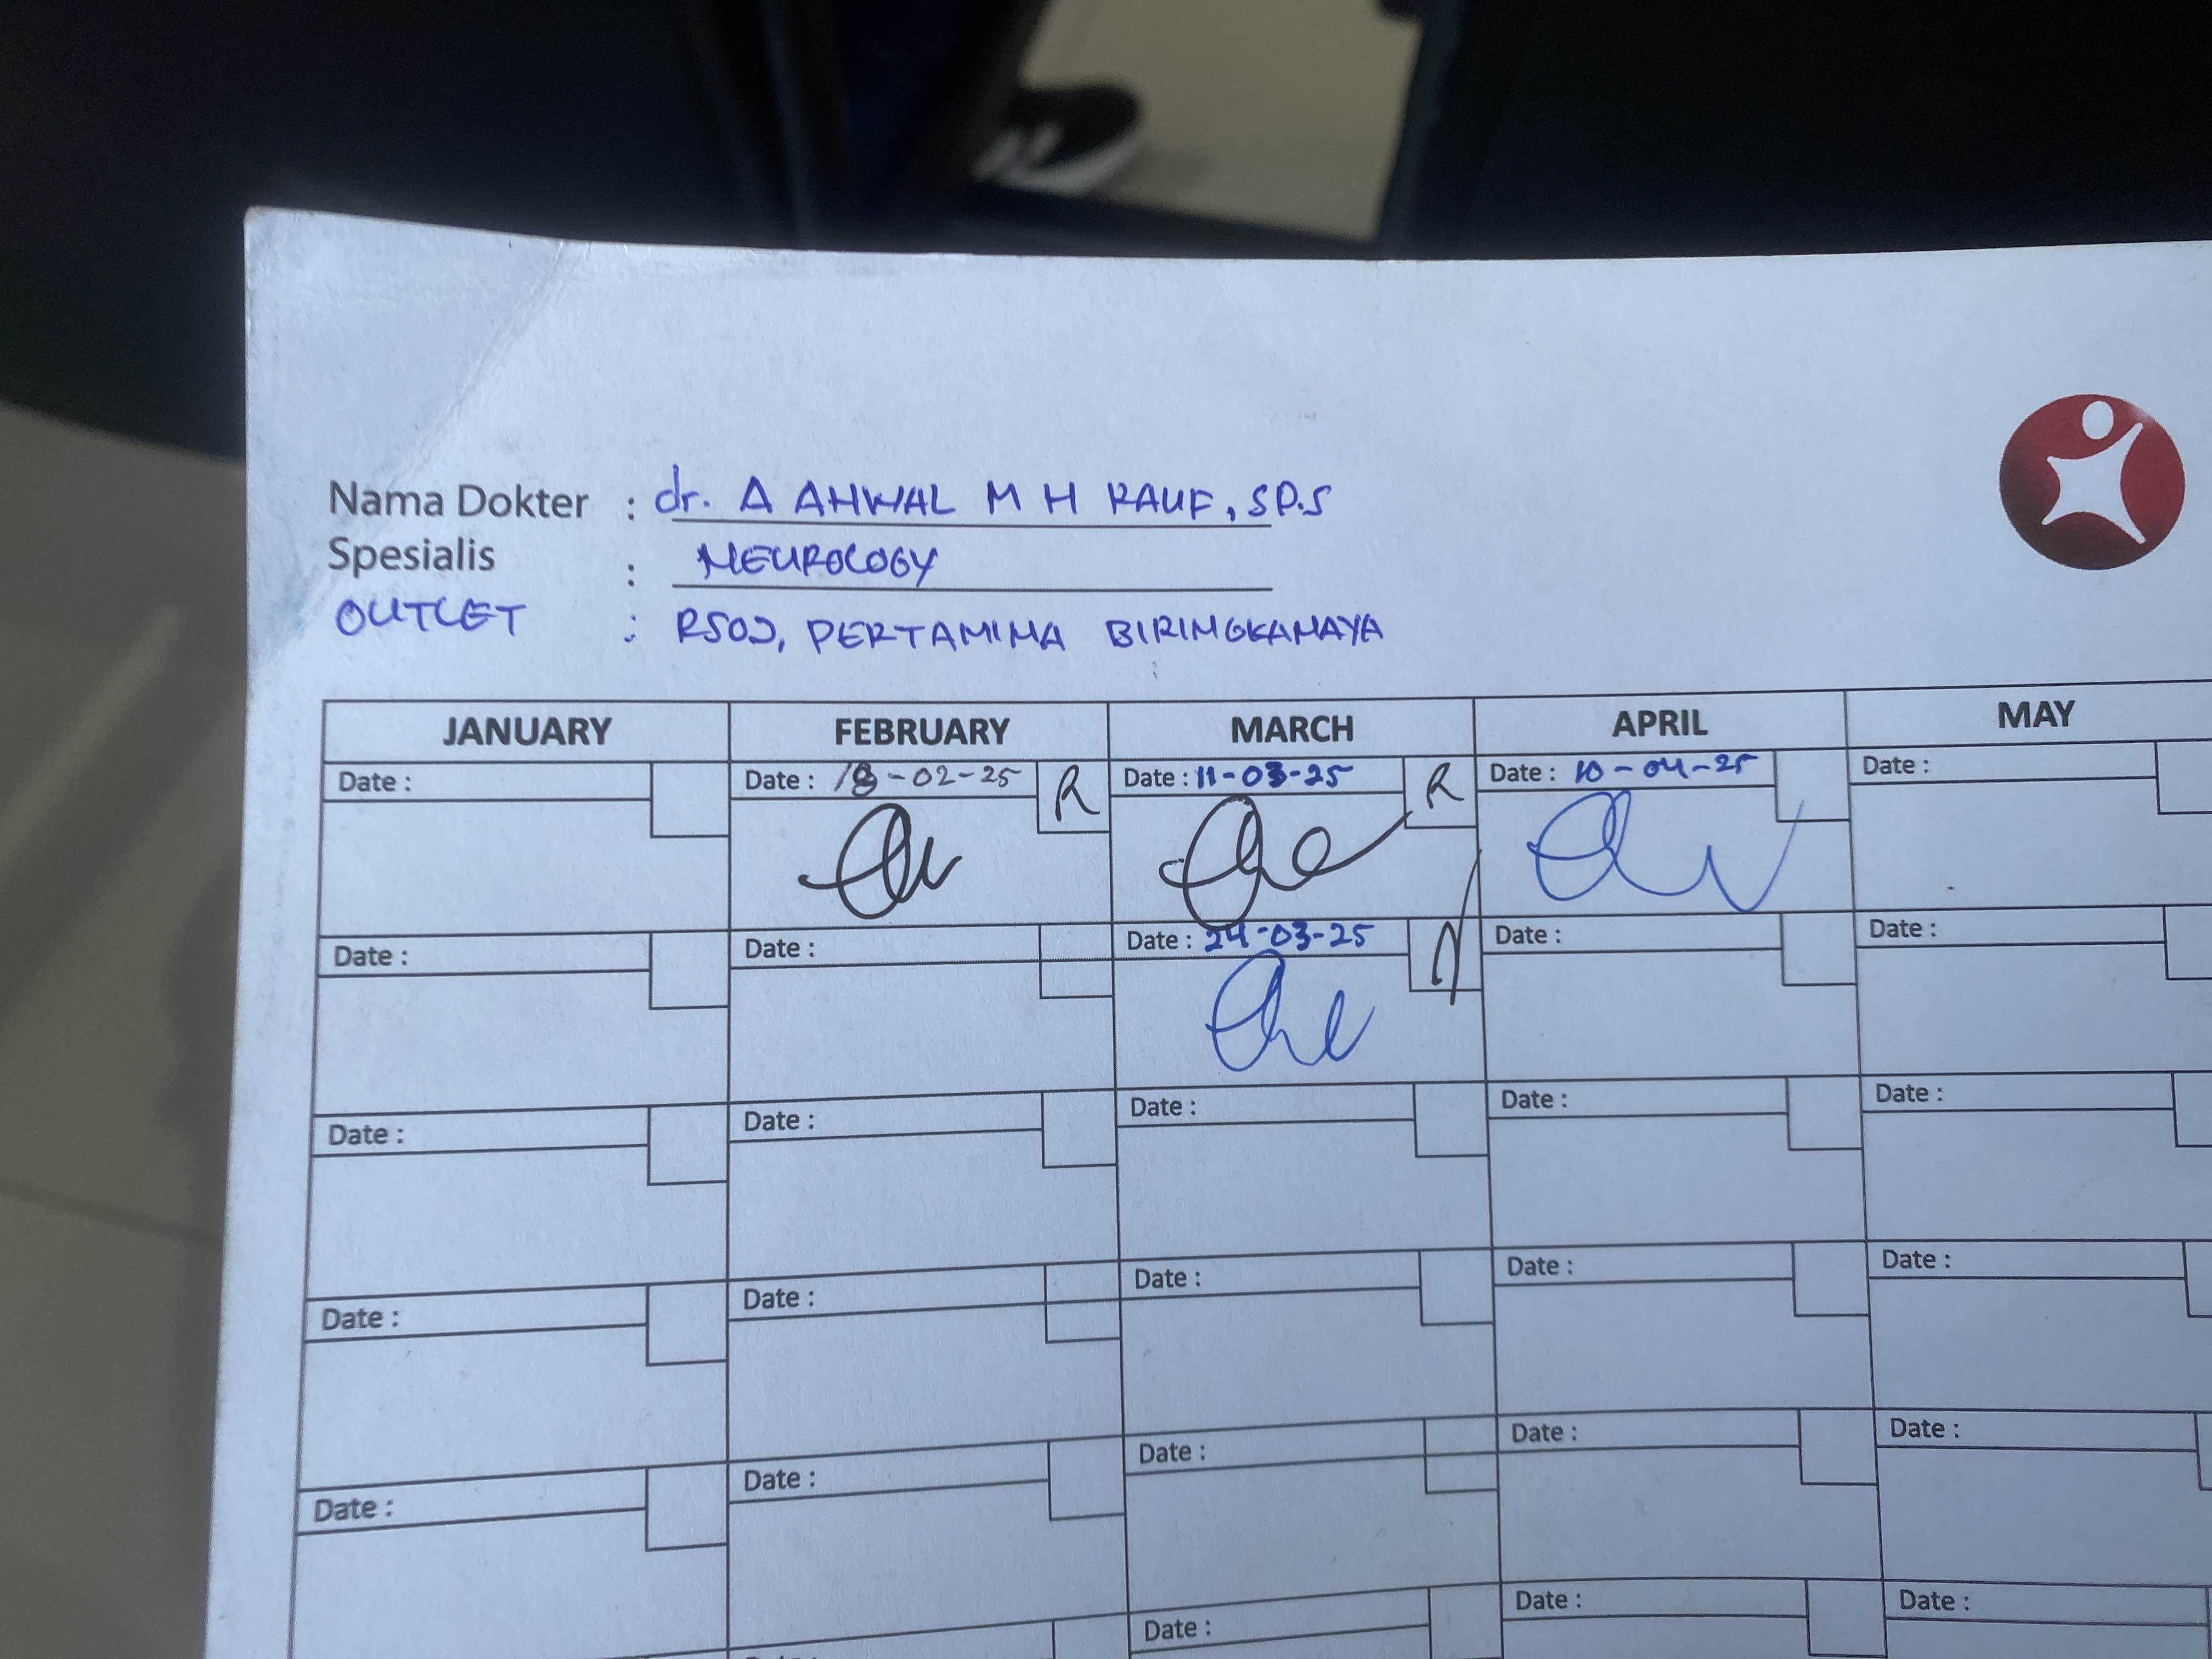 Nama Dokter : dr. A AHWAL M H RAUF, SP.S
Spesialis : NEUROLOGY
OUTLET : RSOJ, PERTAMINA BIRINGKANAYA
JANUARY FEBRUARY MARCH APRIL MAY
Date : Date : 18-02-25 R Date : 11-03-25 R Date : 10-04-25 Date :
Date : Date : Date : 24-03-25 Date : Date :
Date : Date : Date : Date : Date :
Date : Date : Date : Date : Date :
Date : Date : Date : Date : Date :
Date : Date : Date :